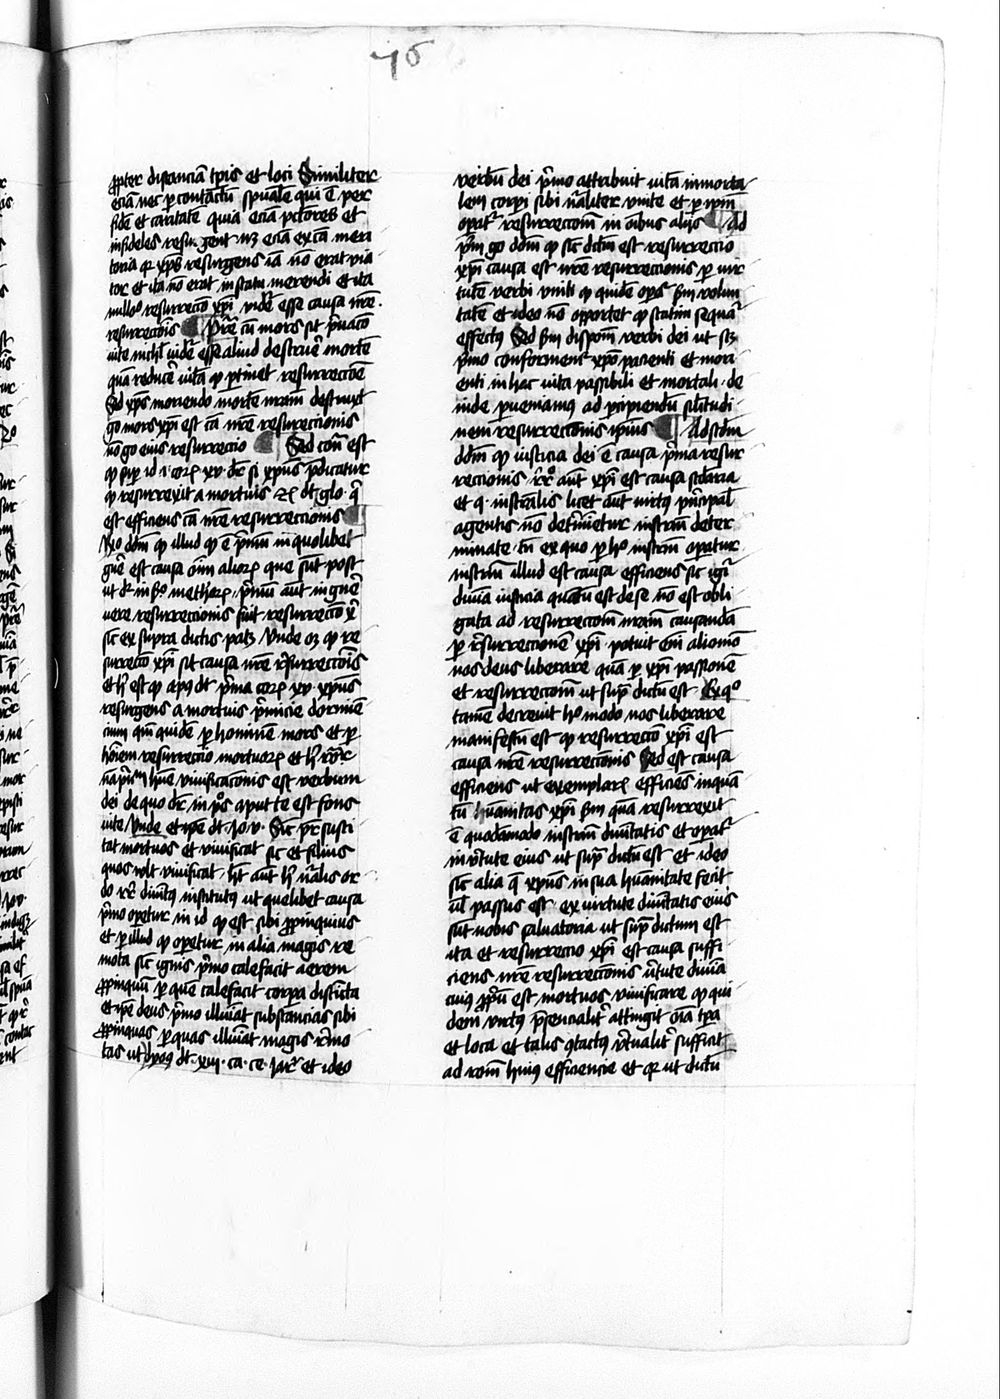 76
propter distanciam temporis et loci Similiter
eciam nec per contactum spiritualem qui est per
fidem et caritatem quia eciam peccatores et
infideles resurgent nec eciam ex causa meri
toria quia christus resurgens iam non erat via
tor et ita non erat in statu merendi et ita
nullo modo resurrectio christi videtur esse causa nostre
resurrectionis Preterea cum mors sit privacio
vite nichil videtur esse aliud destruere mortem
quam reducere vitam quod pertinet resurrectionem
Sed christus moriendo mortem nostram destruxit
ergo mors christi est causa nostre resurrectionis
non ergo eius resurrectio Sed contra est
quod super id 1 cor xv dicitur si christus predicatur
quod resurrexit a mortuis etc dicit glo qui
est efficiens causa nostre resurrectionis
Respondeo dicendum quod illud quod est primum in quolibet
genere est causa omnium aliorum que sunt post
ut dicitur in 2o methor primum autem in genere
vere resurrectionis fuit resurrectio christi
sicut ex supra dictis patet Unde oportet quod re
surrectio christi sit causa nostre resurrectionis
et hoc est quod apostolus dicit prima cor xv christus
resurgens a mortuis primicie dormien
cium quoniam quidem per hominem mors et per
hominem resurrectio mortuorum et hoc racio
nam principium humane vivificacionis est verbum
dei de quo dicitur in ps aput te est fons
vite Unde et ipse dicit Jo v Sicut pater susci
tat mortuos et vivificat sic et filius
quos vult vivificat habet autem hoc naturalis or
do rerum divinitus institutus ut quelibet causa
primo operetur in id quod est sibi propinquius
et per illud quod operetur in alia magis re
mota sicut ignis primo calefacit aerem
propinquum per quem calefacit corpora distancia
et ipse deus primo illuminat substancias sibi
propinquas per quas illuminat magis remo
tas ut dyos dicit xiii ca ce Jer et ideo
verbum dei primo attribuit vitam inmorta
lem corpori sibi naturaliter unite et per ipsum
operatur resurrectionem in omnibus aliis Ad
primum ergo dicendum quod sicut dictum est resurrectio
christi causa est nostre resurrectionis per vir
tutem verbi uniti quod quidem operatur secundum volun
tatem et ideo non opportet quod statim sequatur
effectus Sed secundum disposicionem verbi dei ut scilicet
primo conformemur christo pacienti et mori
enti in hac vita passibili et mortali de
inde perveniamus ad participiendum similitudi
nem resurrectionis ipsius Ad secundum
dicendum quod iusticia dei est causa prima resur
rectionis resurrectio autem christi est causa secundaria
et quasi instrumentalis licet autem virtus principalis
agentis non determinetur instrumentum deter
minate tamen ex quo per hoc instrumentum operatur
instrumentum illud est causa efficiens sic igitur
divina iusticia quantum est de se non est obli
gata ad resurrectionem nostram causandam
per resurrectionem christi potuit enim alio modo
nos deus liberare quam per christi passionem
et resurrectionem ut supra dictum est Ex quo
tamen decrevit hoc modo nos liberare
manifestum est quod resurrectio christi est
causa nostre resurrectionis Sed est causa
efficiens ut exemplaris efficiens inquam
tum humanitas christi secundum quam resurrexit
est quodammodo instrumentum divinitatis et operatur
in virtute eius ut supra dictum est et ideo
sicut alia que christus in sua humanitate fecit
vel passus est ex virtute divinitatis eius
sunt nobis salvatoria ut supra dictum est
ita et resurrectio christi est causa suffi
ciens nostre resurrectionis virtute divina
cuius proprium est mortuos vivificare que qui
dem virtus presencialiter attingit omnia tempora
et loca et talis contactus virtualiter sufficit
ad racionem huius efficiencie et quia ut dictum